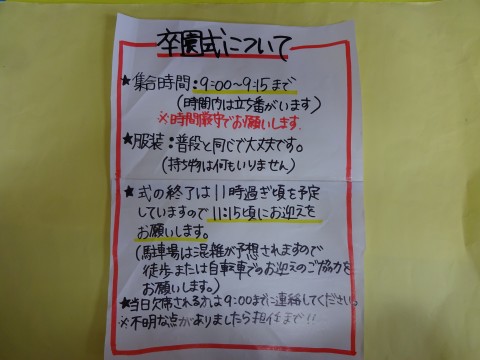 卒園式について
★集合時間:9:00～9:15まで
(時間内は立ち番がいます)
※時間厳守でお願いします.
★服装:普段と同じで大丈夫です。
(持ち物は何もいりません)
★式の終了は11時過ぎ頃を予定
していますので11:15頃にお迎えを
お願いします。
(駐車場は混雑が予想されますので
徒歩または自転車でのお迎えのご協力を
お願いします。)
★当日欠席される方は9:00までに連絡してください。
※不明な点がありましたら担任まで!!